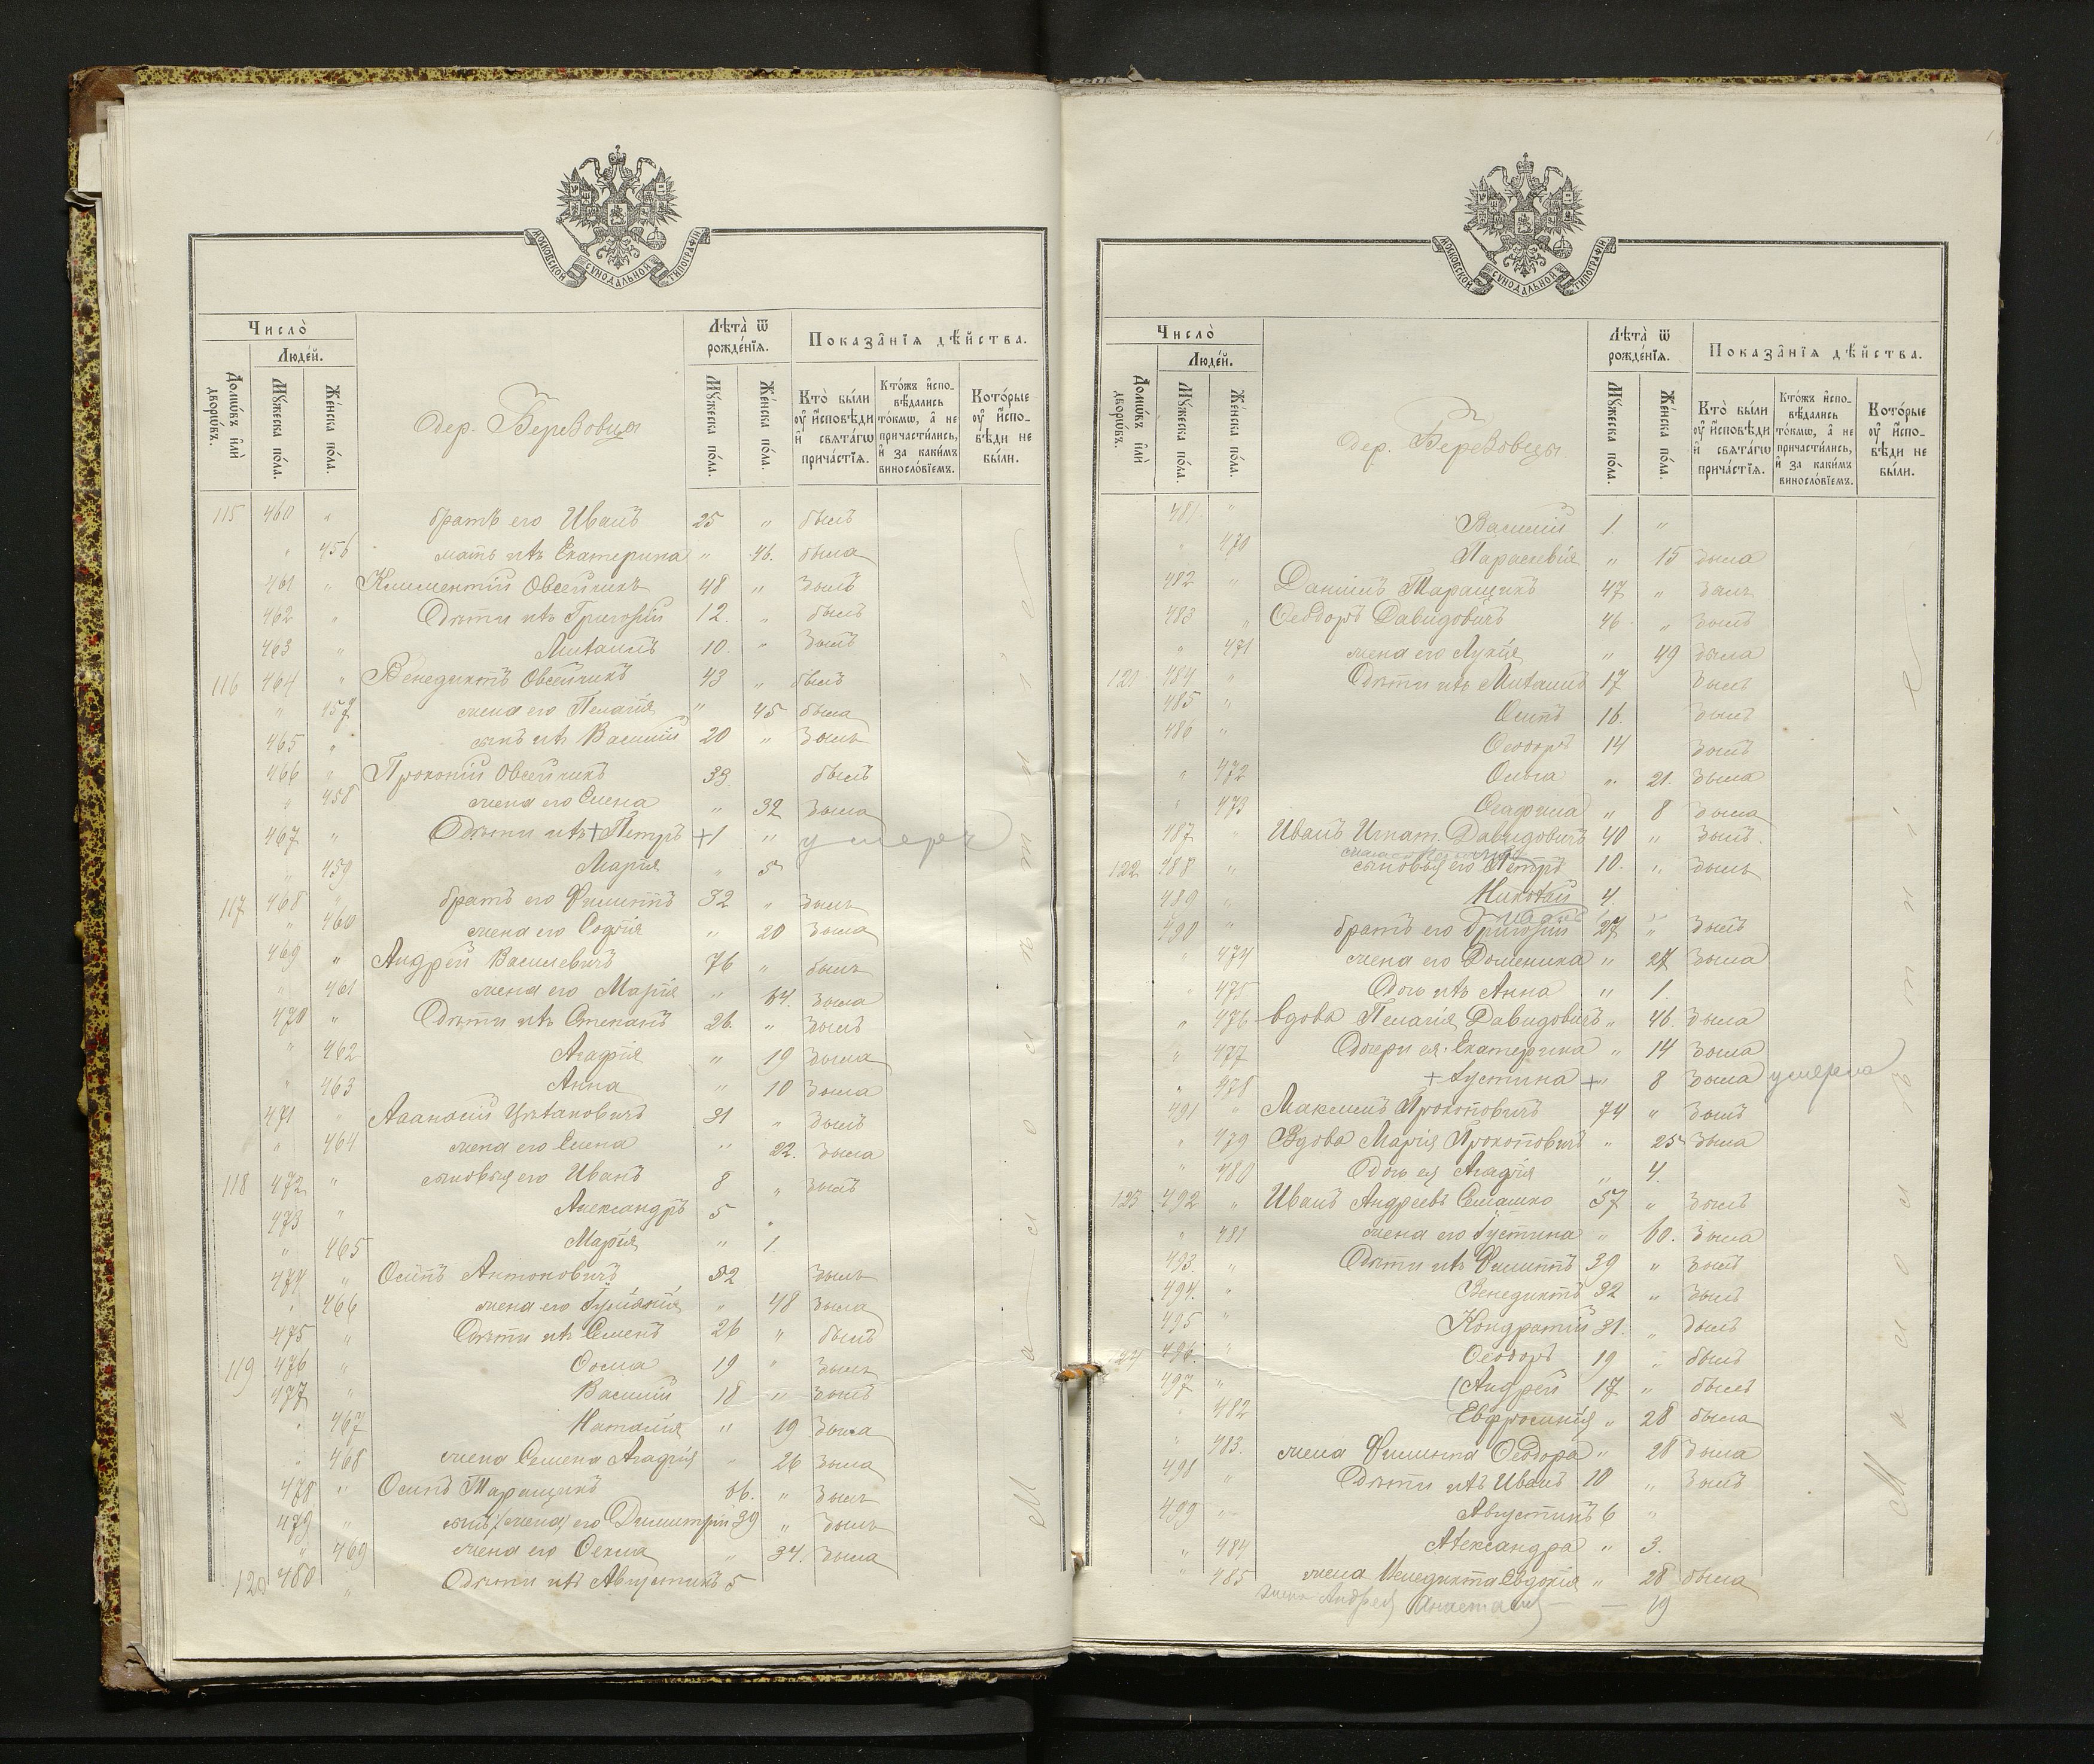 МОСКОВСКОЙ СѴНОДАЛЬНОЙ ТИПОГРАФІИ
Число̀
Люде́й.
Домѡ́въ и҆лѝ дворѡ́въ.
Мꙋ́жеска по́ла.
Же́нска по́ла.
дер. Березовцы
Лѣ̑та̀ ѿ рожде́нїѧ.
Мꙋ́жеска по́ла.
Же́нска по́ла.
Показа̑нїѧ дѣ́йства.
Кто̀ бы́ли оу҆ и҆сповѣди и҆ свѧта́гѡ прича́стїѧ.
Кто́жъ и҆спо- вѣ́дались то́кмѡ, а҆ не причасти́лись, и҆ за каки́мъ винослоⷡ҇емъ.
Кото́рые оу҆ и҆спо- вѣди не бы́ли.
115 460 " братъ его Иванъ 25 " былъ
" 456 мать ихъ Екатерина " 46. была
461 " Климентій Овсейчикъ 48 " былъ
462 " Дѣти ихъ Григорій 12. " былъ
463 " Михаилъ 10. " былъ
116 464 " Венедиктъ Овсейчикъ 43 " былъ
" 457 жена его Пелагія " 45 была
465 " сынъ ихъ Василій 20 " былъ
466 " Прокопій Овсейчикъ 39. былъ
" 458 жена его Елена " 32 была
467 " Дѣти ихъ + Петръ +1 " умеръ
" 459 Марія " 5
117 468 " братъ его Филиппъ 32 " былъ
" 460 жена его Софія " 20 была
469 " Андрей Василевичъ 76 " былъ
" 461 жена его Марія " 64. была
470 " Дѣти ихъ Степанъ 26. " былъ
" 462 Агафія " 19 была
" 463 Анна " 10 была
471 " Аѳанасій 31 " былъ
" 464 жена его Елена " 22. была
118 472 " сыновья его Иванъ 8 " былъ
473 " Александръ 5 "
" 465 Марія " 1.
474 " Осипъ Антоновичъ 52 былъ
" 466 жена его Іуліанія " 48 была
475 " Дѣти ихъ Семенъ 26 " былъ
119 476 " Ѳома 19 " былъ
477 " Василій 18 " былъ
" 467 Наталія " 19 была
" 468 жена Семена Агафія " 26 была
478 " Осипъ Таращикъ 66. " былъ
479 " сынъ (жена) его Димитрій 39 " былъ
" 469 жена его Ѳекла " 34. была
120 480 " Дѣти ихъ Августинъ 5
МОСКОВСКОЙ СѴНОДАЛЬНОЙ ТИПОГРАФІИ
Число̀
Люде́й.
Домѡ́въ и҆лѝ дворѡ́въ.
Мꙋ́жеска по́ла.
Же́нска по́ла.
дер. Березовцы
Лѣ̑та̀ ѿ рожде́нїѧ.
Мꙋ́жеска по́ла.
Же́нска по́ла.
Показа̑нїѧ дѣ́йства.
Кто̀ бы́ли оу҆ и҆сповѣди и҆ свѧта́гѡ прича́стїѧ.
Кто́жъ и҆спо- вѣ́дались то́кмѡ, а҆ не причасти́лись, и҆ за каки́мъ винослоⷡ҇емъ.
Кото́рые оу҆ и҆спо- вѣди не бы́ли.
481. " Василій 1. "
" 470 Параскевія " 15 была
482 " Даніилъ Таращикъ 47 " былъ
483 " Ѳеодоръ Давидовичъ 46 " былъ
" 471 жена его Лукія " 49 была
121 484 " Дѣти ихъ Михаилъ 17 былъ
485 " Осипъ 16. былъ
486 " Ѳеодоръ 14 былъ
" 472 Ольга " 21. была
" 473 Агафина " 8 была
487 " Иванъ Игнат. Давидовичъ 40 " былъ.
122 488 " сыновья его Петръ 10. " былъ
489 " Николай 4.
490 " братъ его Григорій 27 " былъ
" 474 жена его Доменика " 27 была
" 475 Дочь ихъ Анна " 1.
" 476 вдова Пелагія Давидовичъ " 46. была
" 477 Дочери ея: Екатерина " 14 была
" 478 + Іустина + " 8 была умерла
491 " Максимъ Прокоповичъ 74 " былъ
" 479 Вдова Марія Прокоповичъ " 25 была
" 480 Дочь ея Агафія " 4.
123 492 " Иванъ Андреевъ Семашко 57 " былъ
" 481 жена его Іустина " 60. была
493. " Дѣти ихъ Филиппъ 39 " былъ
494. " Венедиктъ 32 " былъ
495 " Кондратій 31. " былъ
124 496. " Ѳеодоръ 19 " былъ
497 " Андрей 17 " былъ
" 482 Евфросинія " 28 была
" 483. жена Филиппа Ѳеодора " 28 была
498 " Дѣти ихъ Иванъ 10 " былъ
499 " Августинъ 6 "
" 484 Александра " 3.
" 485 жена Венедикта Евдокія " 28 была
жена Андрея Анастасія — — 19